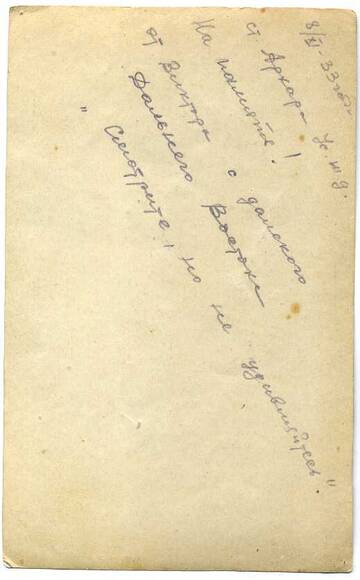 8/XI-33 год.
ст Архара Ус.ж.д.
На памятъ!
от Виктора с далекого
Дальнего Востока
"Смотрите, но не удивляйтесь"